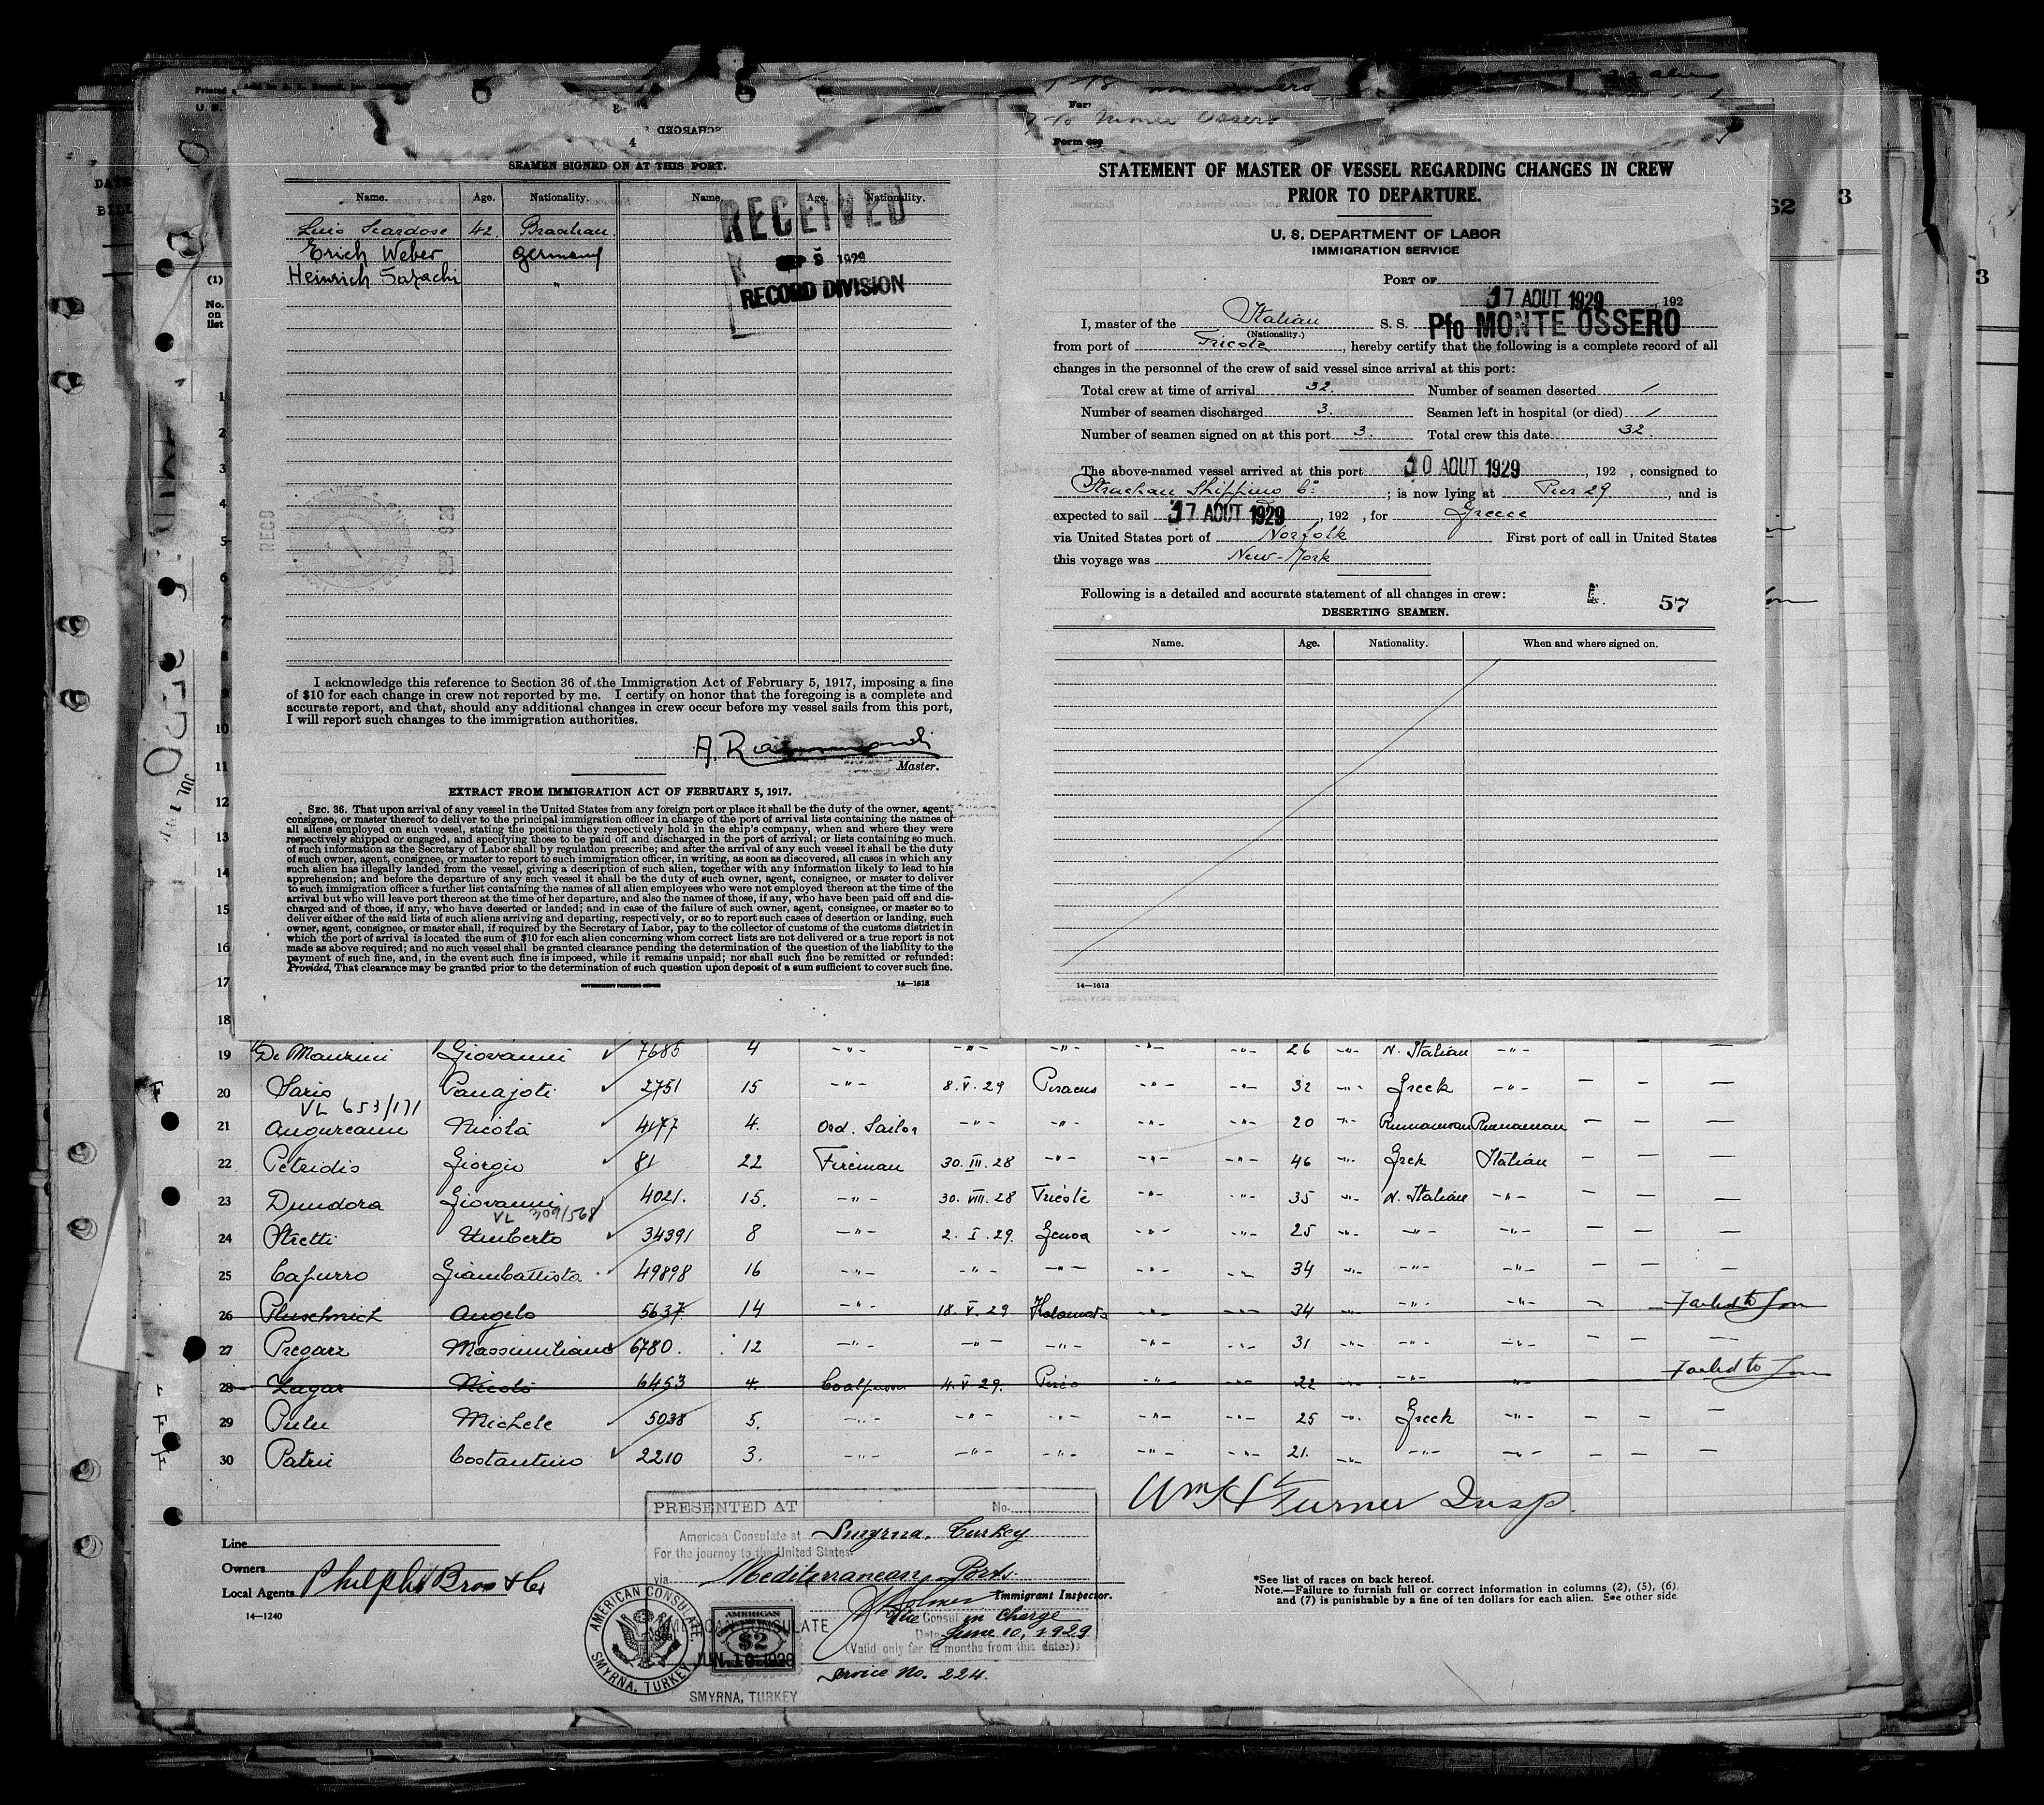 SEAMEN SIGNED ON AT THIS PORT.
Name. Age. Nationality. Name. Age. Nationality.
42.
Erich Weber
Heinrich
RECEIVED
SEP 1929
RECORD DIVISION
RECD
I acknowledge this reference to Section 36 of the Immigration Act of February 5, 1917, imposing a fine
of $10 for each change in crew not reported by me. I certify on honor that the foregoing is a complete and
accurate report, and that, should any additional changes in crew occur before my vessel sails from this port,
I will report such changes to the immigration authorities.
Master.
EXTRACT FROM IMMIGRATION ACT OF FEBRUARY 5, 1917.
SEC. 36. That upon arrival of any vessel in the United States from any foreign port or place it shall be the duty of the owner, agent,
consignee, or master thereof to deliver to the principal immigration officer in charge of the port of arrival lists containing the names of
all aliens employed on such vessel, stating the positions they respectively hold in the ship's company, when and where they were
respectively shipped or engaged, and specifying those to be paid off and discharged in the port of arrival; or lists containing so much
of such information as the Secretary of Labor shall by regulation prescribe; and after the arrival of any such vessel it shall be the duty
of such owner, agent, consignee, or master to report to such immigration officer, in writing, as soon as discovered, all cases in which any
such alien has illegally landed from the vessel, giving a description of such alien, together with any information likely to lead to his
apprehension; and before the departure of any such vessel it shall be the duty of such owner, agent, consignee, or master to deliver
to such immigration officer a further list containing the names of all alien employees who were not employed thereon at the time of the
arrival but who will leave port thereon at the time of her departure, and also the names of those, if any, who have been paid off and dis-
charged and of those, if any, who have deserted or landed; and in case of the failure of such owner, agent, consignee, or master so to
deliver either of the said lists of such aliens arriving and departing, respectively, or so to report such cases of desertion or landing, such
owner, agent, consignee, or master shall, if required by the Secretary of Labor, pay to the collector of customs of the customs district in
which the port of arrival is located the sum of $10 for each alien concerning whom correct lists are not delivered or a true report is not
made as above required; and no such vessel shall be granted clearance pending the determination of the question of the liability to the
payment of such fine, and, in the event such fine is imposed, while it remains unpaid; nor shall such fine be remitted or refunded:
Provided, That clearance may be granted prior to the determination of such question upon deposit of a sum sufficient to cover such fine.
GOVERNMENT PRINTING OFFICE 14—1613
STATEMENT OF MASTER OF VESSEL REGARDING CHANGES IN CREW
PRIOR TO DEPARTURE.
U. S. DEPARTMENT OF LABOR
IMMIGRATION SERVICE
PORT OF
17 AOUT 1929, 192
I, master of the Italian S. S. Pfo MONTE OSSERO
(Nationality.)
from port of Trieste, hereby certify that the following is a complete record of all
changes in the personnel of the crew of said vessel since arrival at this port:
Total crew at time of arrival 32. Number of seamen deserted /
Number of seamen discharged 3. Seamen left in hospital (or died) /
Number of seamen signed on at this port 3. Total crew this date 32.
The above-named vessel arrived at this port 10 AOUT 1929, 192 , consigned to
Strachan Shipping Co. ; is now lying at Pier 29, and is
expected to sail 17 AOUT 1929, 192 , for Greece
via United States port of Norfolk First port of call in United States
this voyage was New-York
Following is a detailed and accurate statement of all changes in crew: 57
DESERTING SEAMEN.
Name. Age. Nationality. When and where signed on.
14—1613
(1)
No. on list
19 De Manzini Giovanni 7685 4 -"- -"- -"- -"- -"- 26 -"- N. Italian -"- — — —
20 Panajoti 2751 15 -"- 8. V. 29 Piraeus -"- -"- 32 -"- Greek -"- — — —
VL 653/171
21 Nicola 4177 4. Ord. Sailor -"- -"- -"- -"- 20 -"- — — —
22 Petridis Giorgio 81 22 Fireman 30. III. 28 -"- -"- -"- 46 -"- Grek Italian — — —
23 Dundora Giovanni 4021. 15. -"- 30. VIII. 28 Trieste -"- -"- 35 -"- N. Italian -"- — — —
24 Stretti Umberto 34391 8 -"- 2. I. 29. Genoa -"- -"- 25 -"- -"- -"- — — —
25 Capurro Giambattista 49898 16 -"- -"- -"- -"- -"- 34 -"- -"- -"- — — —
26 Angelo 5637 14 -"- 18. V. 29 Kalamata -"- -"- 34 -"- -"- — Failed to Join
27 Pregarz Massimiliano 6780. 12 -"- -"- -"- -"- -"- 31 -"- -"- -"- — — —
28 Zagar Nicolò 6453 4. 4. V. 29. -"- -"- 22 -"- -"- -"- Failed to Join
29 Michele 5038 5. -"- -"- -"- -"- -"- 25 -"- Greek -"- — — —
30 Costantino 2210 3. -"- -"- -"- -"- -"- 21. -"- -"- -"- — — —
Wm H Turner Insp.
Line
Owners
Local Agents Phelps Bros & Co
14—1240
PRESENTED AT No.
American Consulate at Smyrna, Turkey
For the journey to the United States
via Mediterranean Ports
Immigrant Inspector.
Vice Consul in Charge
Date June 10, 1929
(Valid only for 12 months from this date.)
Service No. 224.
AMERICAN CONSULATE
SMYRNA, TURKEY
AMERICAN CONSULATE
JUN 10 1929
SMYRNA, TURKEY
AMERICAN
$2
*See list of races on back hereof.
Note.—Failure to furnish full or correct information in columns (2), (5), (6)
and (7) is punishable by a fine of ten dollars for each alien. See other side